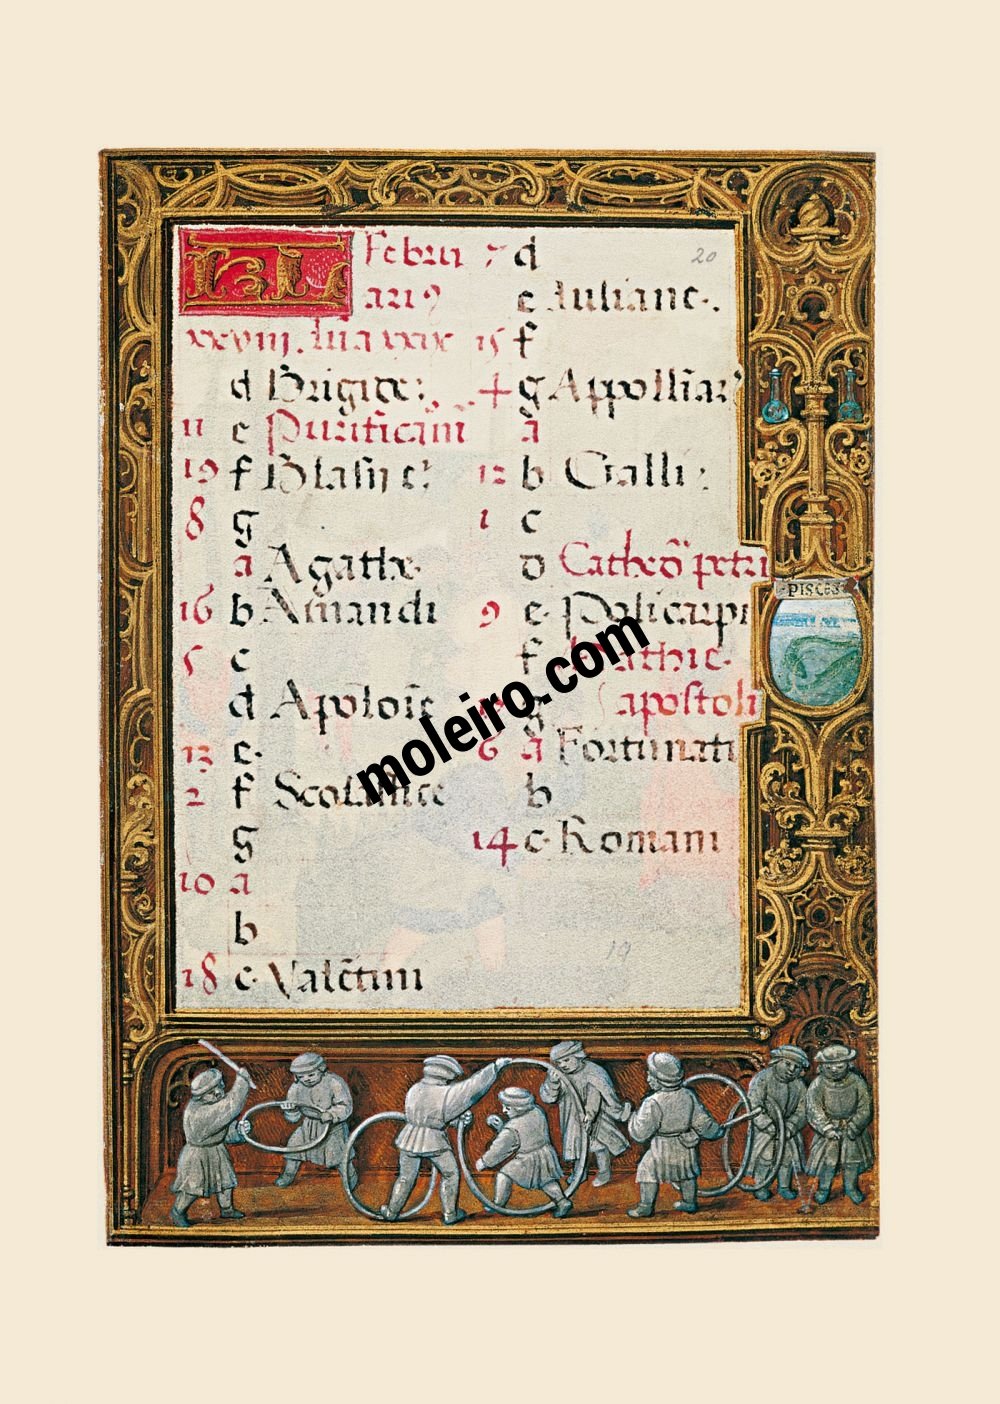 KL Februarius
xxviii. Lūa xxix
d Brigide:
11 e Purificātiī
19 f Blasij e:
8 g
a Agathe.
16 b Amandi
5 c
d Apōloīe
13 e.
2 f Scolastice
g
10 a
b
18 c. Valētini
7 d
e Juliane.
15 f
4 g Appollīar
a
12 b Galli:
1 c
d Cathed petri
9 e. Policarpi
f Mathie.
g apostoli
6 a Fortunati
b
14 c. Romani
20
19
PISCES
moleiro.com